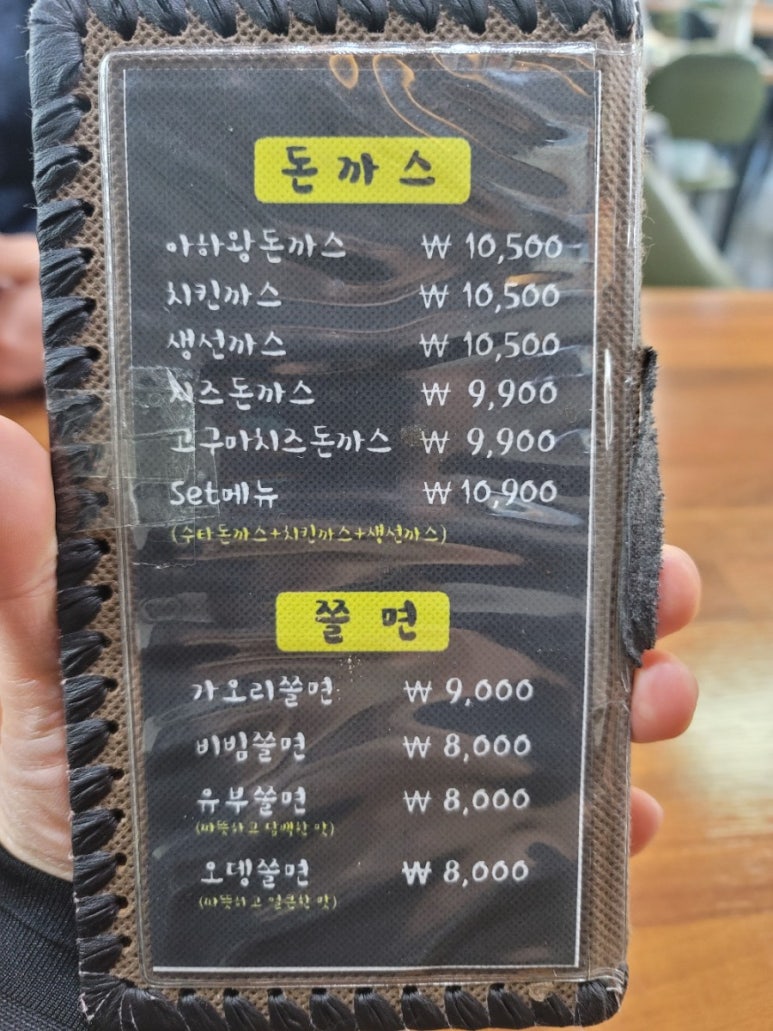 돈까스
아하왕돈까스 ₩ 10,500
치킨까스 ₩ 10,500
생선까스 ₩ 10,500
치즈돈까스 ₩ 9,900
고구마치즈돈까스 ₩ 9,900
Set메뉴 ₩ 10,900
(수타돈까스+치킨까스+생선까스)
쫄면
가오리쫄면 ₩ 9,000
비빔쫄면 ₩ 8,000
유부쫄면 ₩ 8,000
(따뜻하고 담백한 맛)
오뎅쫄면 ₩ 8,000
(따뜻하고 얼큰한 맛)